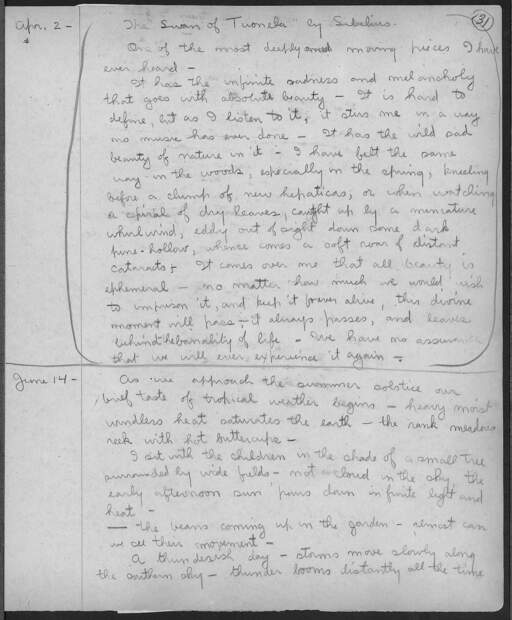 31
Apr. 2 - The Swan of Tuonela by Sibelius.
One of the most deeply and moving pieces I have
ever heard -
It has the infinite sadness and melancholy
that goes with absolute beauty - It is hard to
define, but as I listen to it, it stirs me in a way
no music has ever done - It has the wild sad
beauty of nature in it - I have felt the same
way in the woods, especially in the spring, kneeling
before a clump of new hepaticas, or when watching
a spiral of dry leaves, caught up by a miniature
whirlwind, eddy out of sight down some dark
pine-hollow, whence comes a soft roar of distant
cataracts + It comes over me that all beauty is
ephemeral - no matter how much we would wish
to imprison it, and keep it forever alive, this divine
moment will pass - it always passes, and leaves
behind the banality of life - We have no assurance
that we will ever experience it again -
June 14 - As we approach the summer solstice our
brief taste of tropical weather begins - heavy moist
windless heat saturates the earth - the rank meadows
reek with hot buttercups -
I sit with the children in the shade of a small tree
surrounded by wide fields - not a cloud in the sky, the
early afternoon sun pours down infinite light and
heat -
— the beans coming up in the garden - almost can
we see their movement -
A thunderish day - storms move slowly along
the southern sky - thunder booms distantly all the time